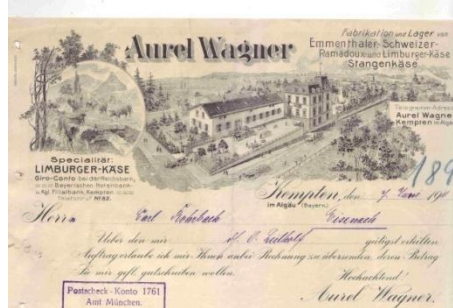 Aurel Wagner
Fabrikation und Lager von
Emmenthaler- Schweizer-
Ramadoux- und Limburger-Käse
Stangenkäse.
Telegramm-Adresse
Aurel Wagner
Kempten
Specialität:
LIMBURGER-KÄSE
Giro-Conto bei der Reichsbank,
Bayerischen Notenbank
u. Kgl. Filialbank, Kempten.
189
Kempten, den 7. 190
im Algäu (Bayern.)
Herrn Carl Eisenach
Ueber den mir gütigst erteilten
Auftrag erlaube ich mir Ihnen anbei Rechnung zu übersenden, deren Betrag
Sie mir gefl. gutschreiben wollen.
Hochachtend!
Aurel Wagner.
Postscheck-Konto 1761
Amt München.